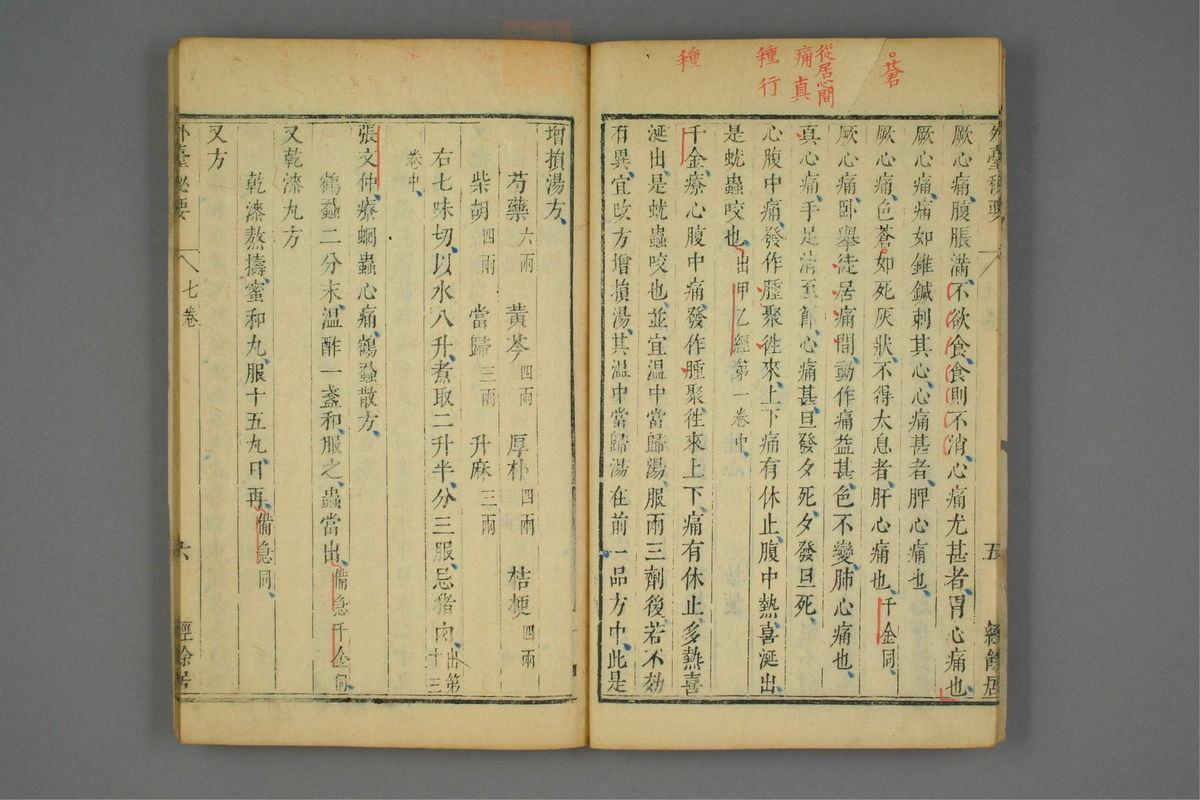 從居心間
痛真
種行
種
外臺秘要
五
經餘居
厥心痛腹脹滿不欲食食則不消心痛尤甚者胃心痛也
厥心痛痛如錐鍼刺其心心痛甚者脾心痛也
厥心痛色蒼如死灰狀不得太息者肝心痛也千金同
厥心痛臥舉徒居痛間動作痛益甚色不變肺心痛也
真心痛手足清至節心痛甚旦發夕死夕發旦死
心腹中痛發作腫聚徃來上下痛有休止腹中熱喜涎出
是蚘蟲咬也出甲乙經第一卷中
千金療心腹中痛發作腫聚徃來上下痛有休止多熱喜
涎出是蚘蟲咬也並宜温中當歸湯服兩三劑後若不効
有異宜改方增損湯其温中當歸湯在前一品方中此是
增損湯方
芍藥六兩 黃芩四兩 厚朴四兩 桔梗四兩
柴胡四兩 當歸三兩 升麻三兩
右七味切以水八升煮取二升半分三服忌猪肉出第十三
卷中
張文仲療蛔蟲心痛鶴蝨散方
鶴蝨二分末温酢一盞和服之蟲當出備急千金同
又乾漆丸方
乾漆熬擣蜜和丸服十五丸日再備急同
又方
外臺秘要
七卷
六
經餘居